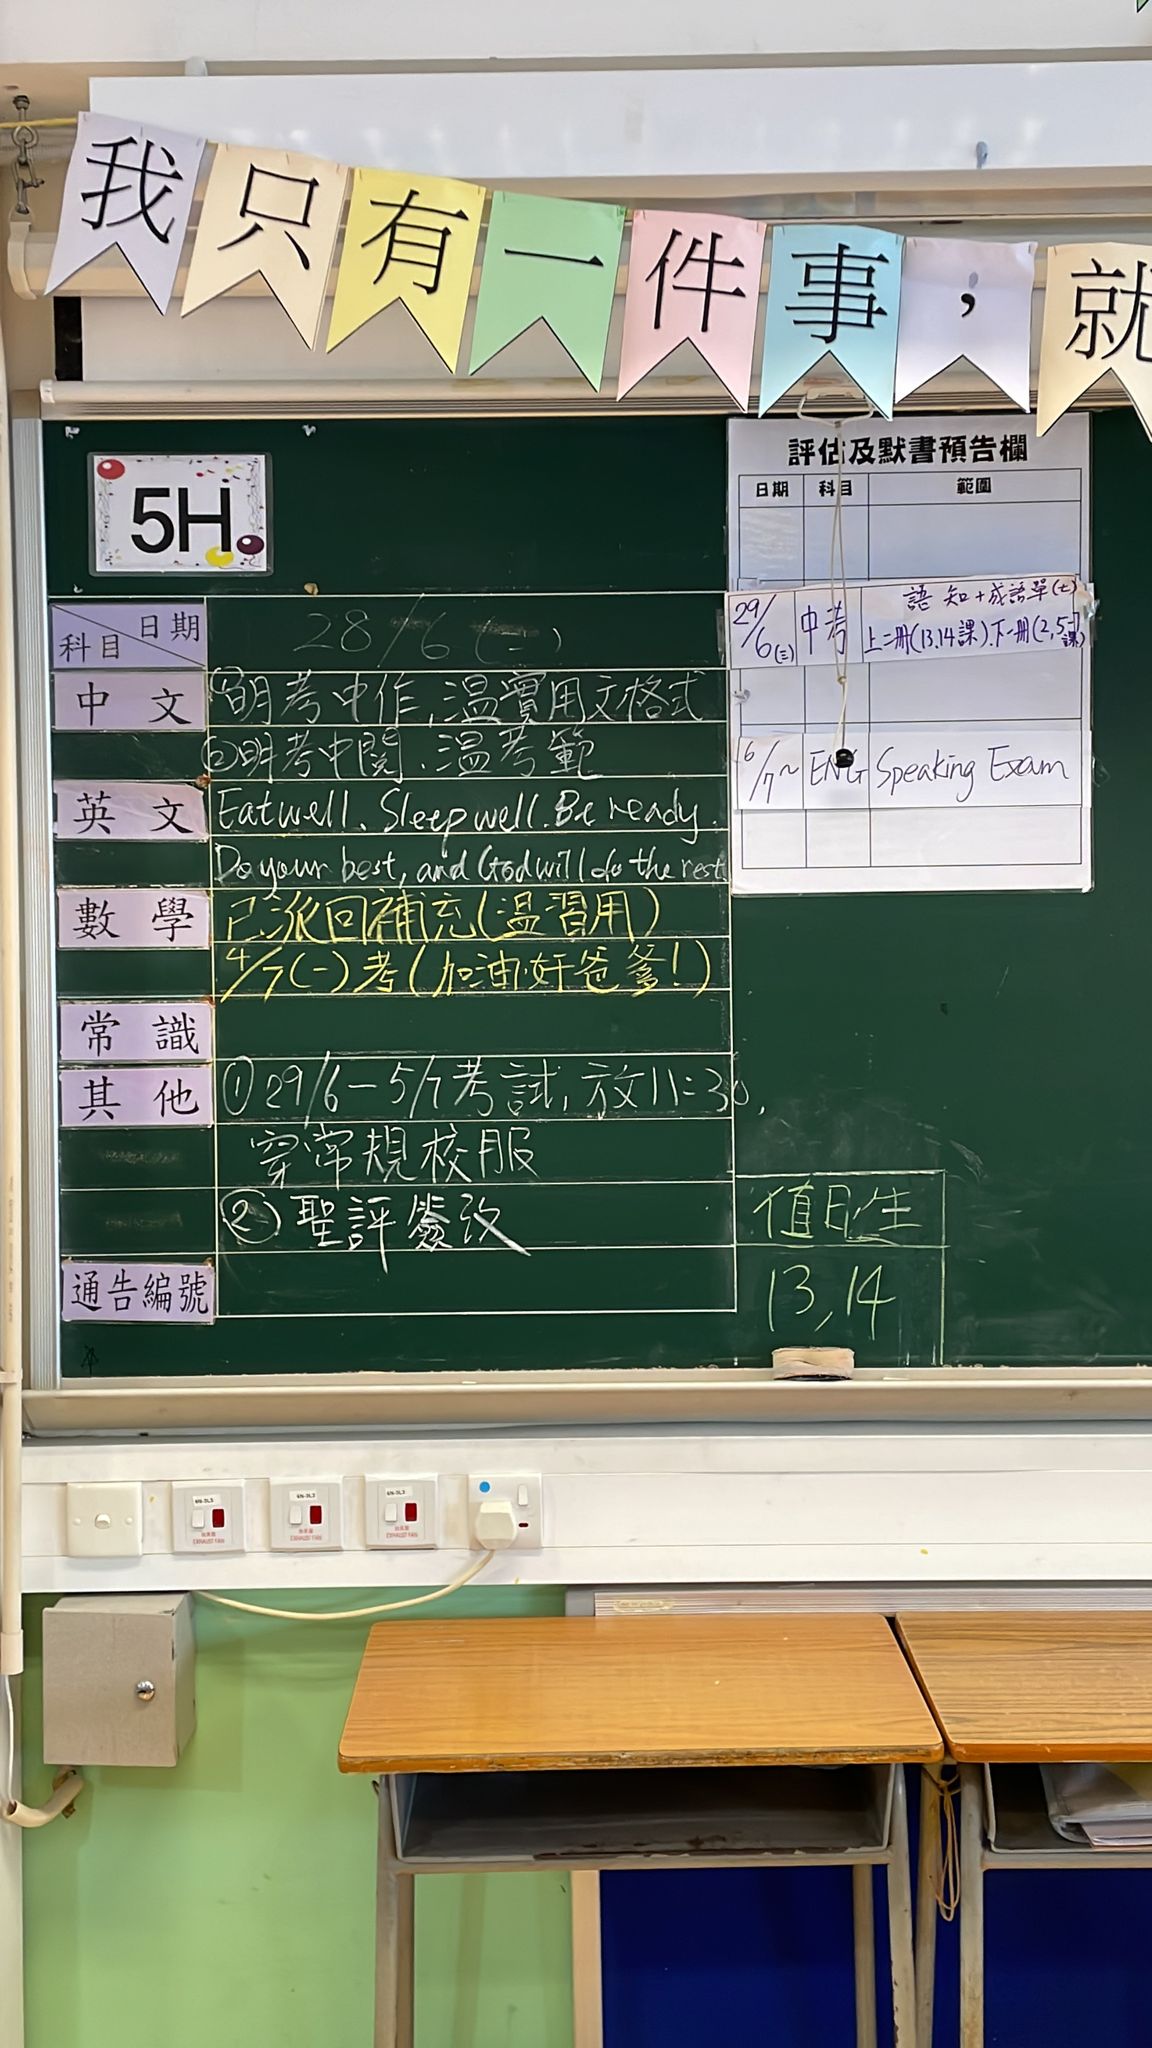 我只有一件事，就
5H
評估及默書預告欄
日期 科目 範圍
29/6(三) 中考 語知+成語單(七)
上二冊(13,14課).下一冊(2,5-7課)
6/7~ ENG Speaking Exam
科目 日期 28/6(二)
中文 ①明考中作,溫實用文格式
②明考中閱、溫考範
英文 Eat well. Sleep well. Be ready.
Do your best, and God will do the rest
數學 已派回補充(溫習用)
4/7(一)考(加油呀爸爹!)
常識
其他 ①29/6-5/7考試,放11:30,
穿常規校服
②聖評簽改
通告編號
值日生
13,14
EXHAUST FAN
EXHAUST FAN
EXHAUST FAN